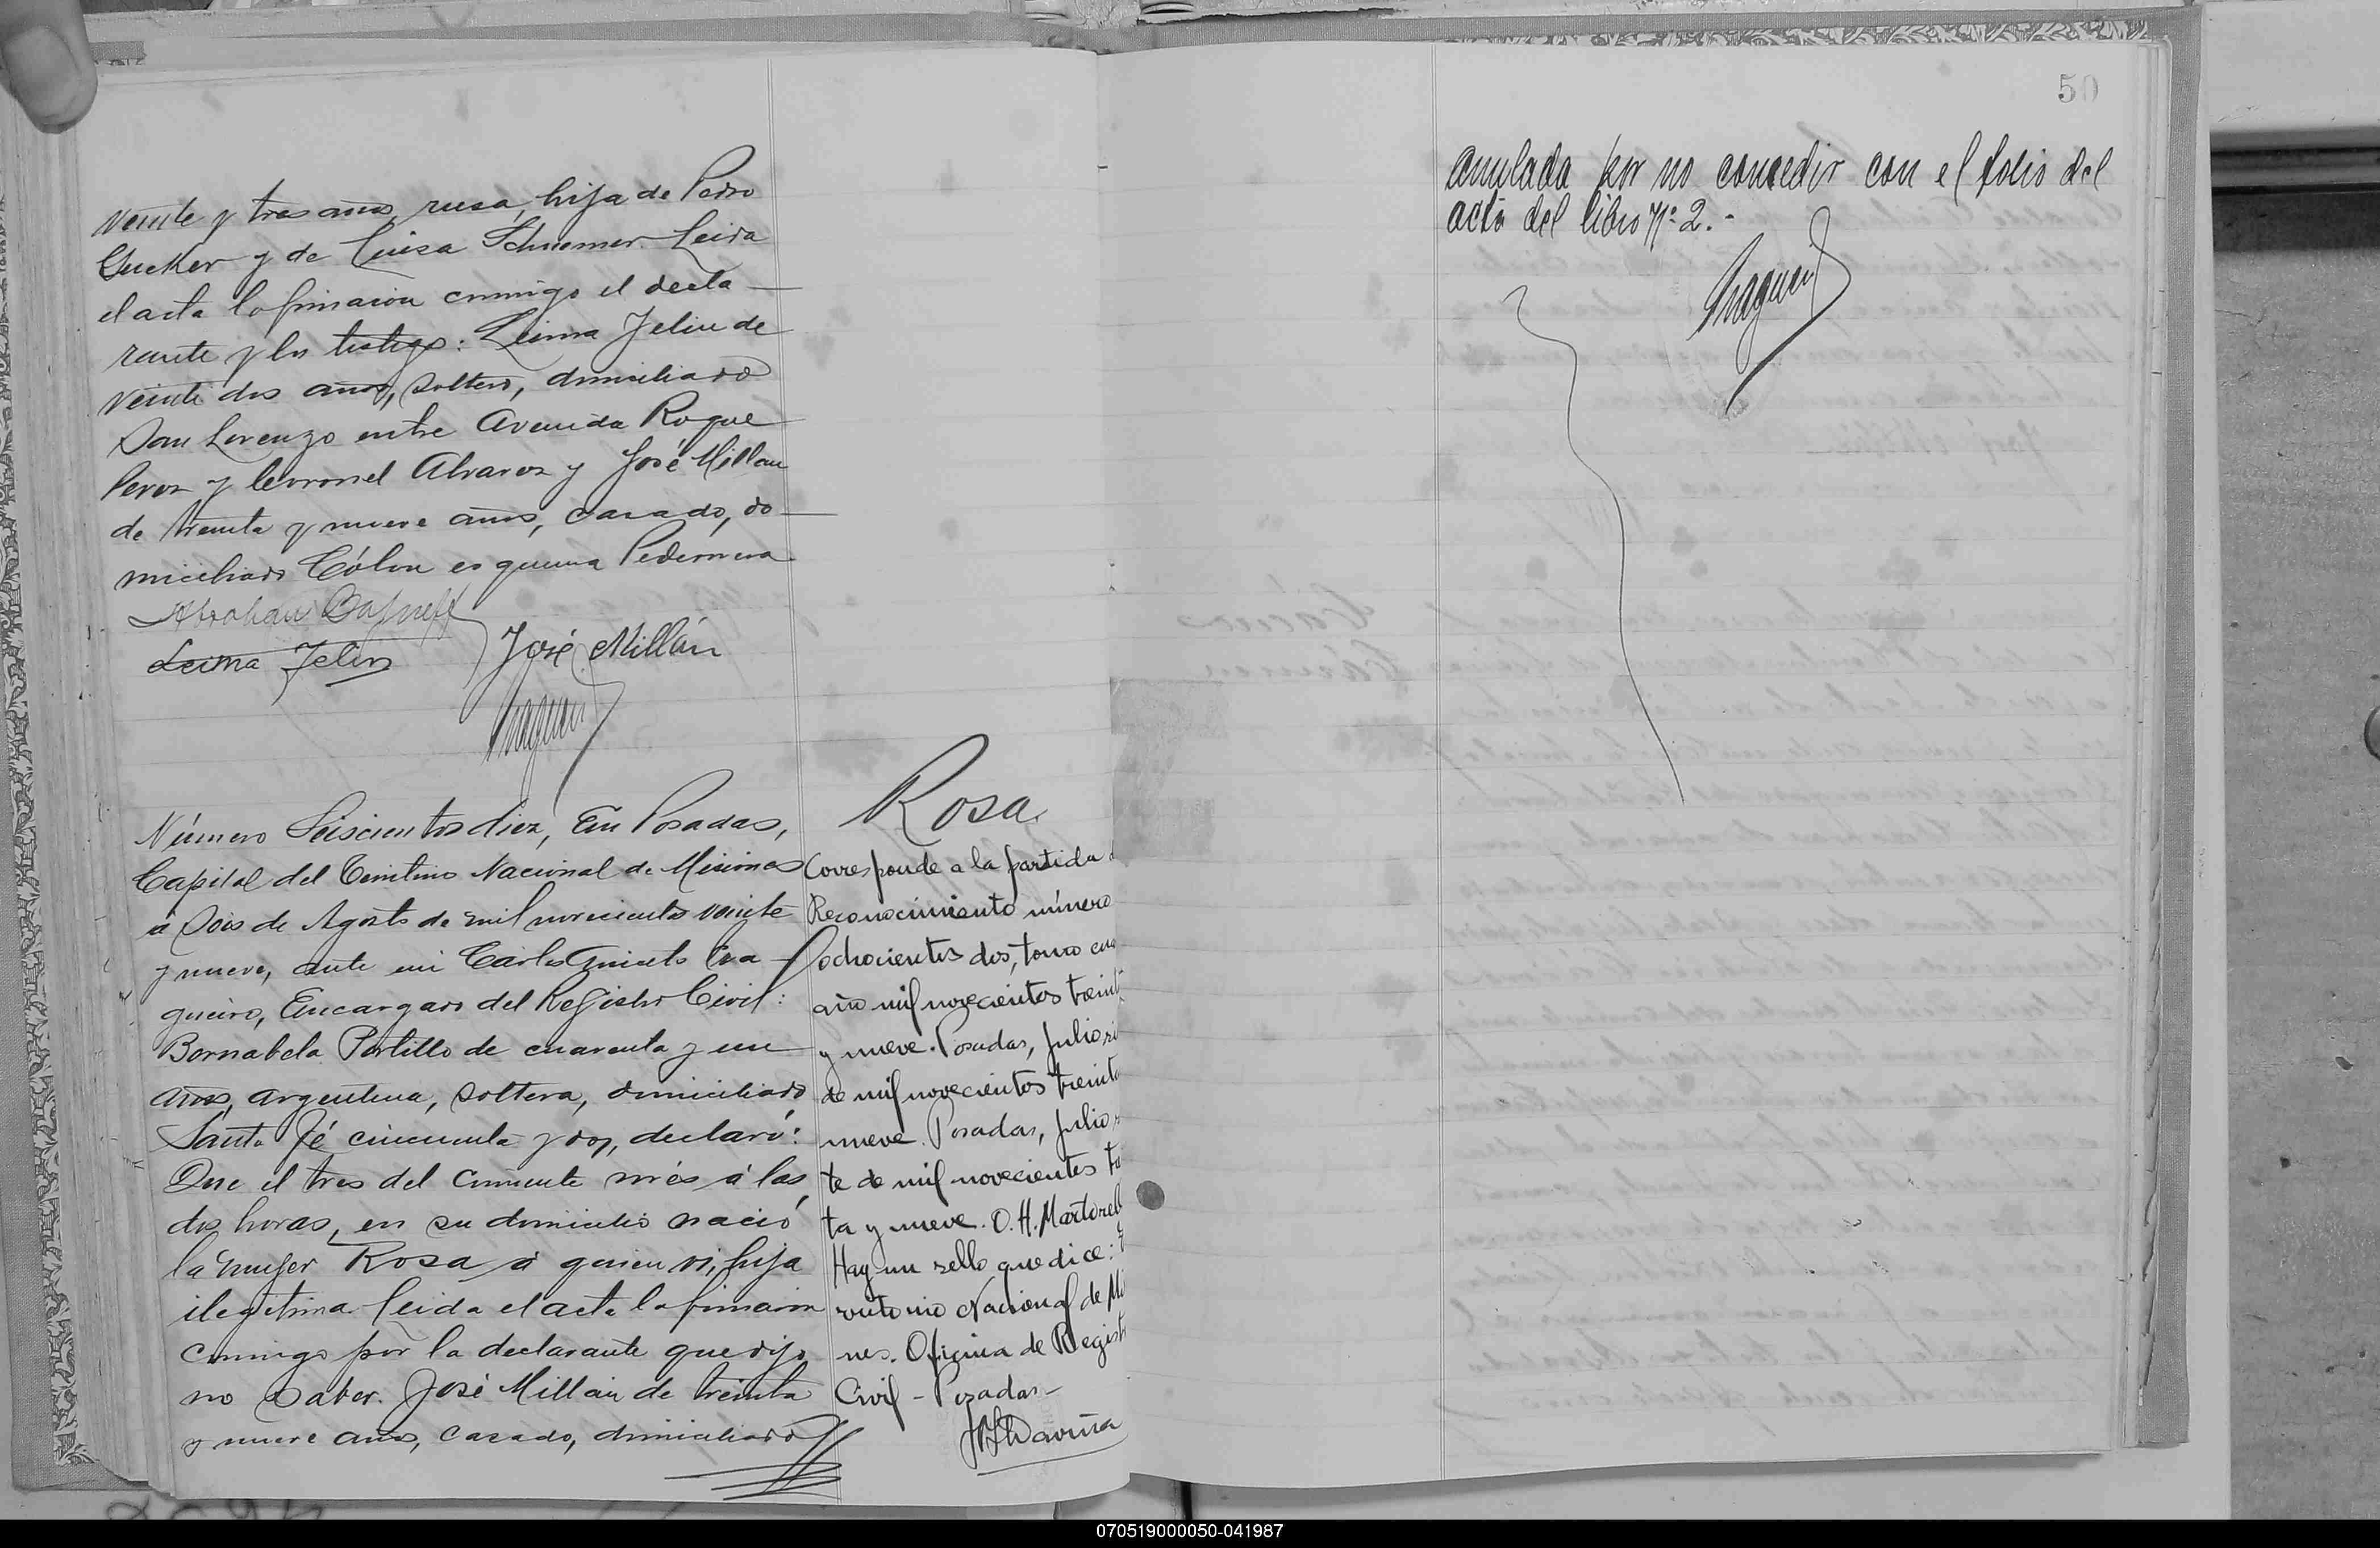 veinte y tres años, rusa, hija de Pedro
Gucker y de Luisa Schriemer. Leida
el acta la firmaron conmigo el decla
rante y los testigos: Leima Jelin de
veinte dos años, soltero, domiciliado
San Lorenzo entre Avenida Roque
Perez y Coronel Alvarez y José Millan
de treinta y nueve años, casado, do
miciliado Cólon esquina Pedernera
Abrahan
Leima Jelin
José Millán
Número Seiscientos diez, En Posadas,
Capital del Territorio Nacional de Misiones
á Seis de Agosto de mil novecientos veinte
y nueve, ante mi Carlos Aniceto Fra
gueiro, Encargado del Registro Civil:
Bernabela Portillo de cuarenta y un
años, argentina, soltera, domiciliado
Santa Fé cincuenta y dos, declaró:
Que el tres del corriente més á las
dos horas, en su domicilio nació
la mujer Rosa á quien ví, hija
ilegitima. Leida el acta la firmaron
conmigo por la declarante que dijo
no saber. José Millán de treinta
y nueve años, casado, domiciliado
Rosa
Corresponde a la partida
Reconocimiento número
ochocientos dos, tomo
año mil novecientos treint
y nueve. Posadas, Julio
de mil novecientos treinta
nueve. Posadas, Julio
te de mil novecientos
ta y nueve. O. H. Martorell
Hay un sello que dice:
rritorio Nacional de Mi
nes. Oficina de Regist
Civil - Posadas -
50
Anulada por no concedir con el folio del
acta del libro Nº 2.-
070519000050-041987